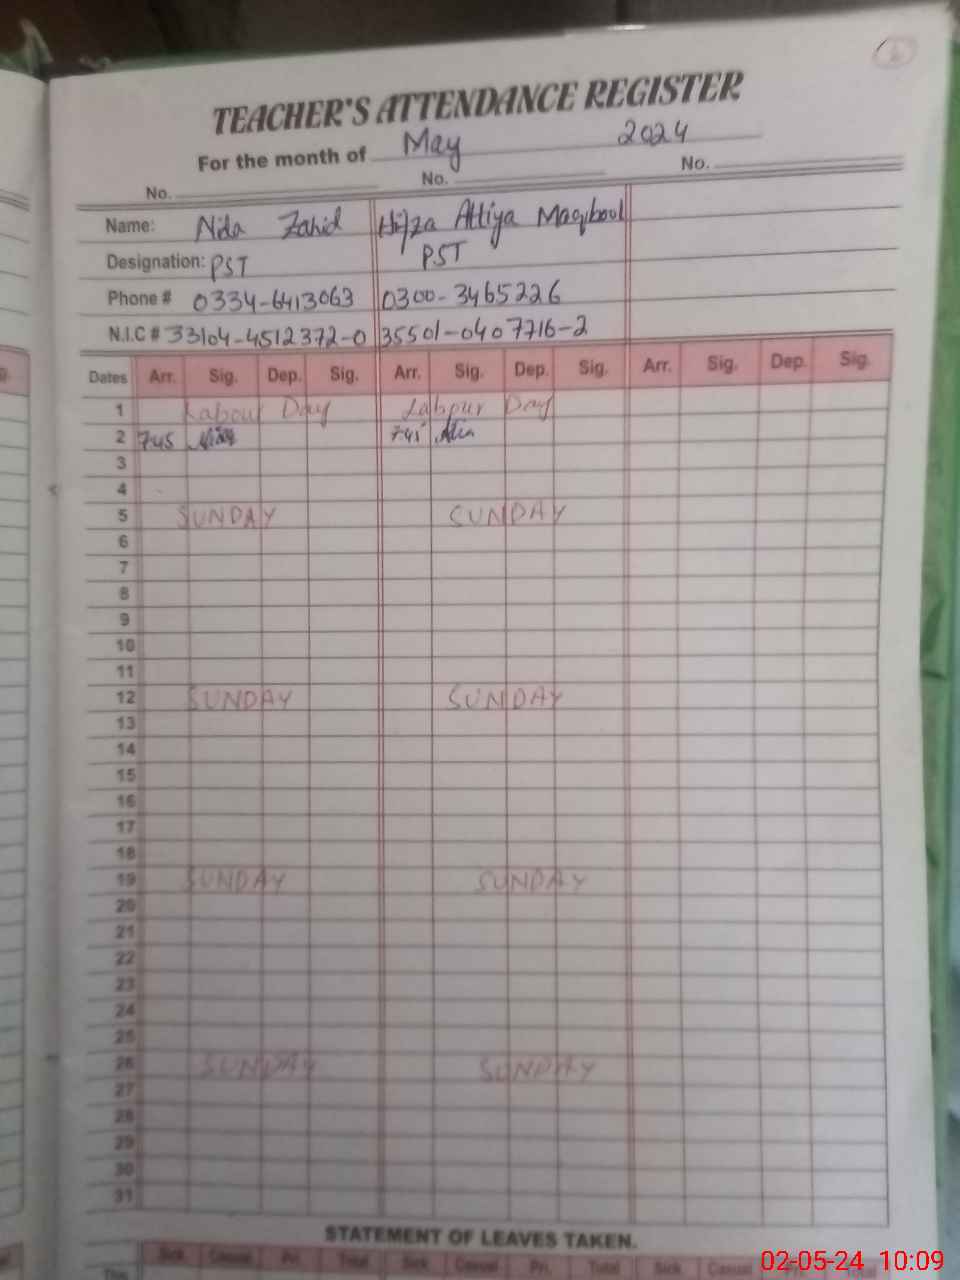 TEACHER'S ATTENDANCE REGISTER
For the month of May 2024
No. No. No.
Name: Nida Zahid Hifza Attiya Maqbool
Designation: PST PST
Phone # 0334-6413063 0300-3465226
N.I.C # 33104-4512372-0 35501-0407716-2
Dates Arr. Sig. Dep. Sig. Arr. Sig. Dep. Sig. Arr. Sig. Dep. Sig.
1 Labour Day Labour Day
2 745 745
3
4
5 SUNDAY SUNDAY
6
7
8
9
10
11
12 SUNDAY SUNDAY
13
14
15
16
17
18
19 SUNDAY SUNDAY
20
21
22
23
24
25
26 SUNDAY SUNDAY
27
28
29
30
31
STATEMENT OF LEAVES TAKEN.
Sick Casual Pri. Total Sick Casual Pri. Total Sick
02-05-24 10:09